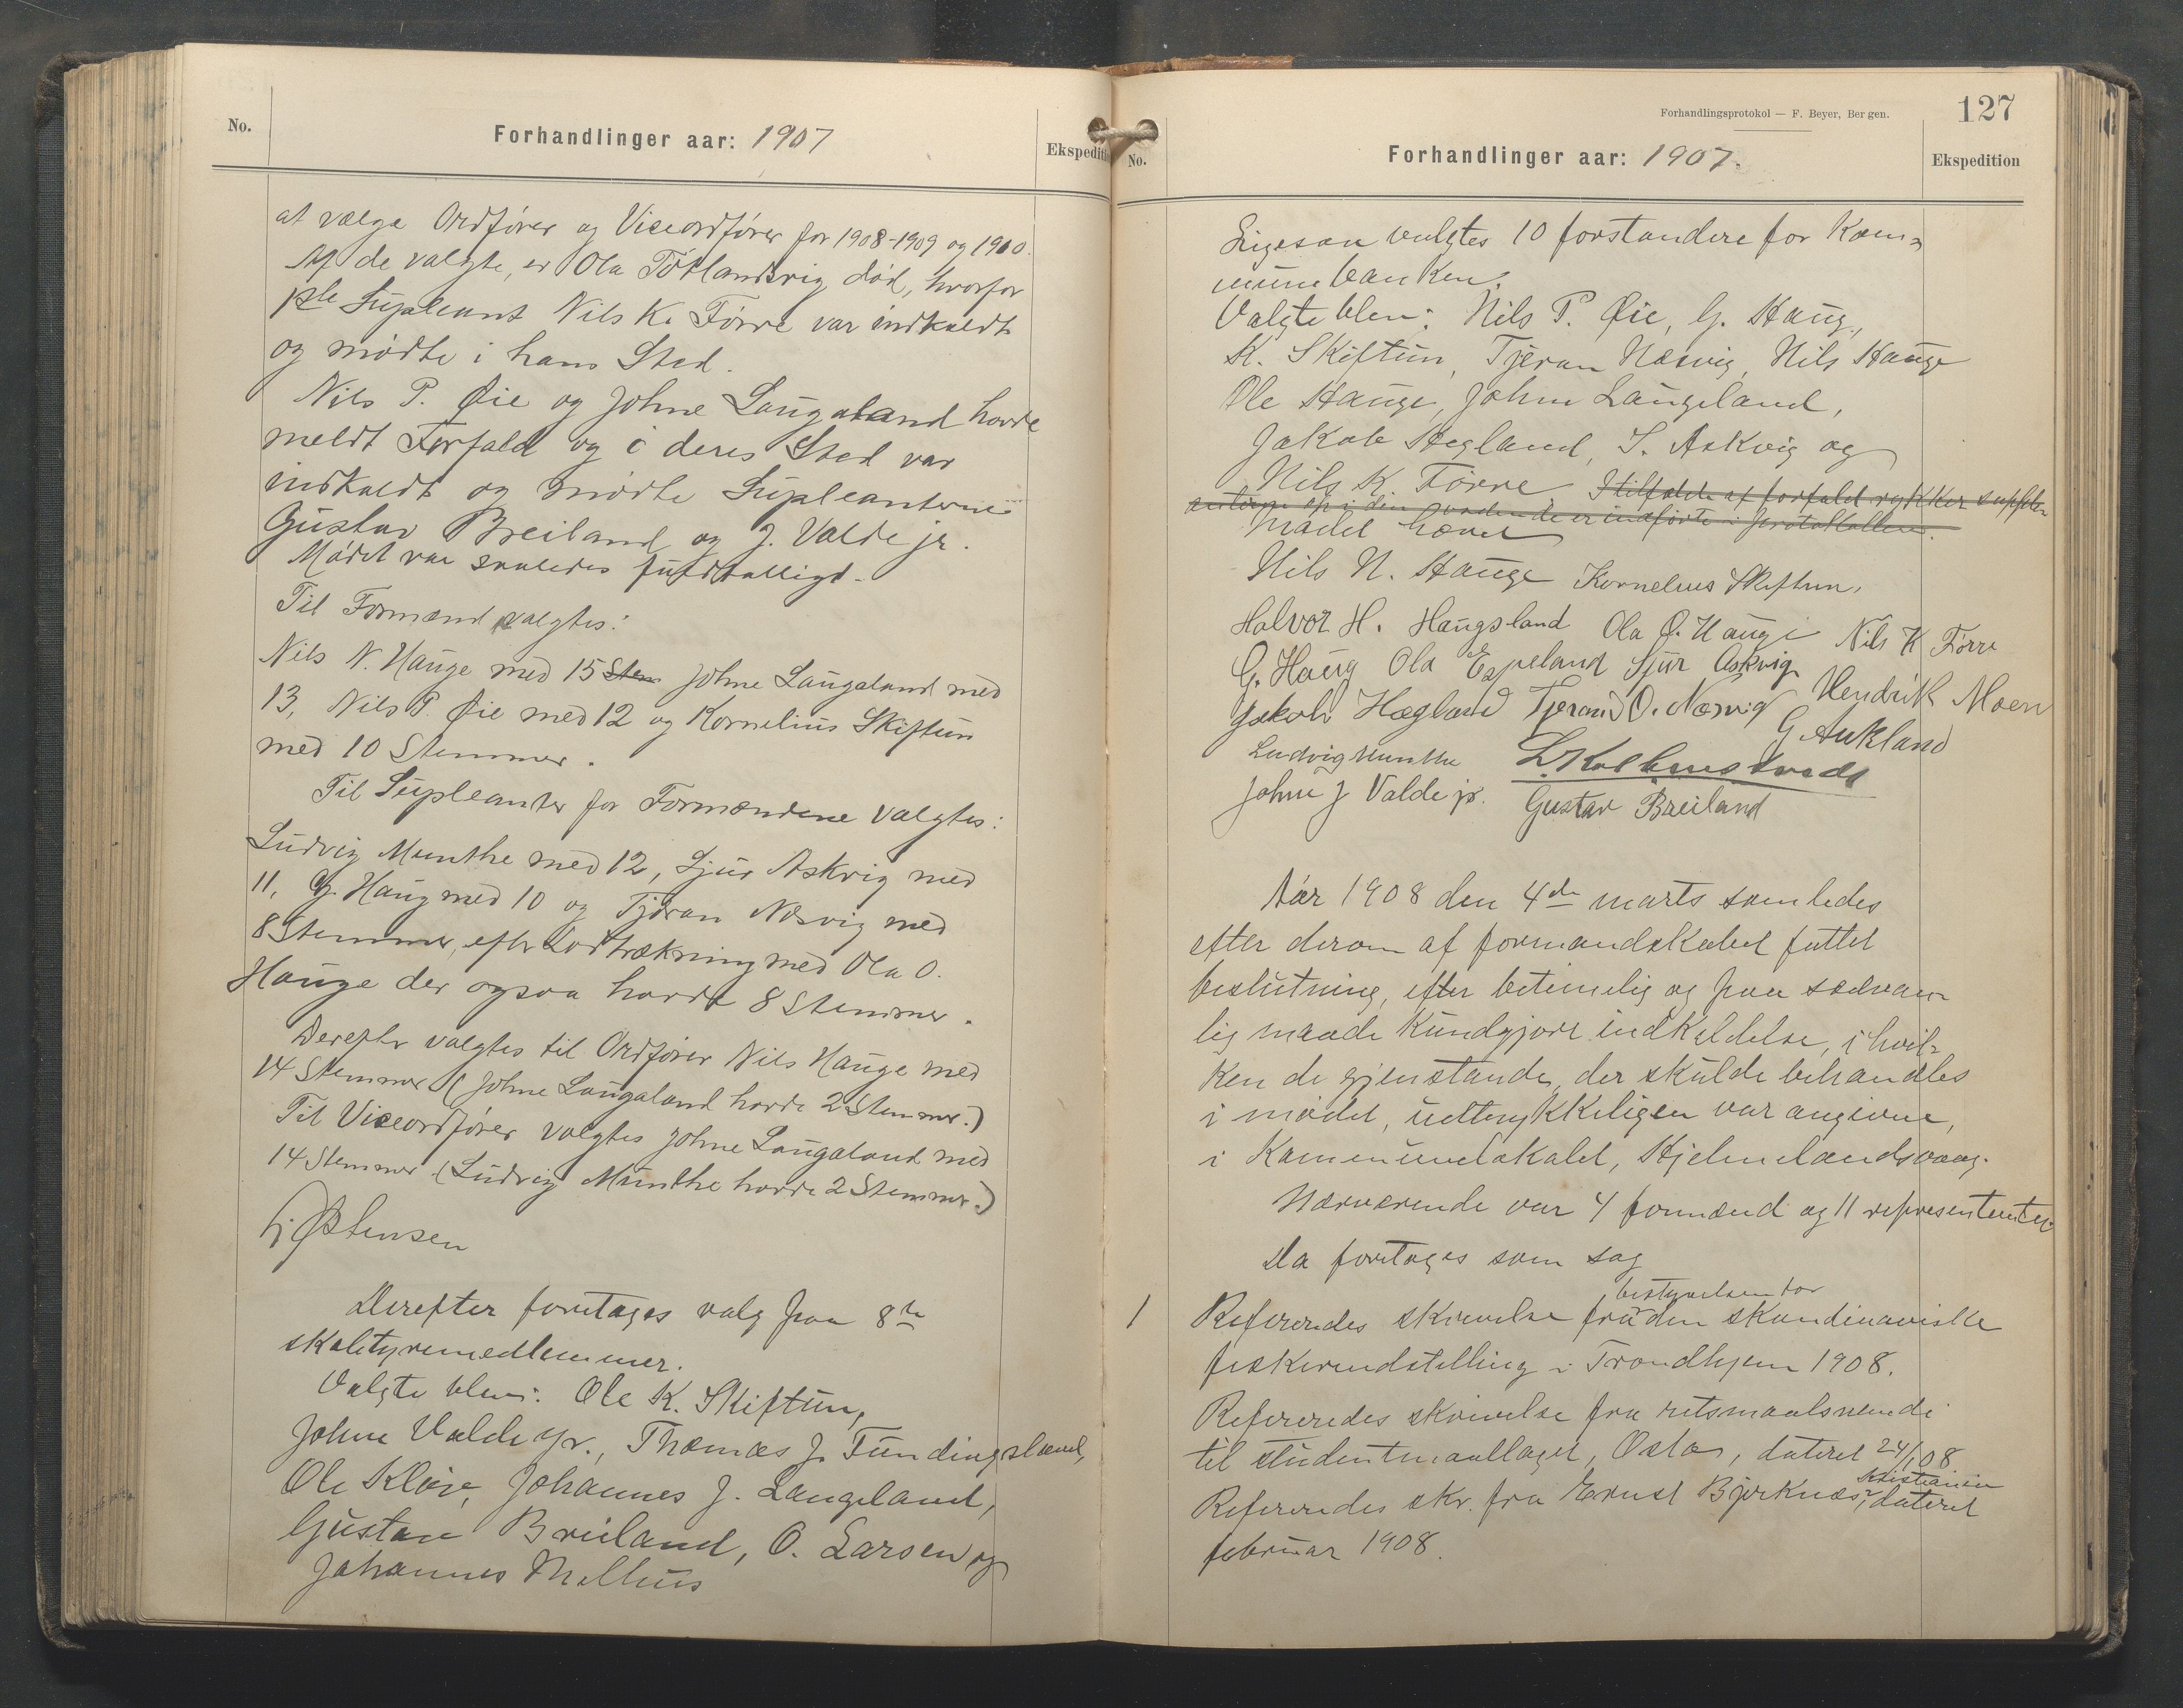 No.
Forhandlinger aar: 1907
Ekspediti
at vælge Ordfører og Viceordfører for 1908-1909 og 1910.
Af de valgte, er Ola Tøtlandsvig død, hvorfor
1ste Supleant Nils K. Førre var indkaldt
og mødte i hans Sted.
Nils P. Øie og Johne Laugaland havde
meldt Forfald og i deres Sted var
indkaldt og mødte Supleanterne
Gustav Breiland og J. Valde jr.
Mødet var saaledes fuldtalligt.
Til Formænd valgtes:
Nils N. Hauge med 15 Stem Johne Laugaland med
13, Nils P. Øie med 12 og Kornelius Skiftun
med 10 Stemmer.
Til Supleanter for Formændene valgtes:
Ludvig Munthe med 12, Sjur Askvig med
11, G. Haug med 10 og Tjeran Nesvig med
8 Stemmer, efter Lodtrækning med Ola O.
Hauge der ogsaa havde 8 Stemmer.
Derefter valgtes til Ordfører Nils Hauge med
14 Stemmer (Johne Laugaland havde 2 Stemmer.)
Til Viceordfører valgtes Johne Laugaland med
14 Stemmer (Ludvig Munthe havde 2 Stemmer.)
Østensen
Derefter foretages valg paa 8te
skolstyremedlemmer.
Valgte blev: Ole K. Skiftun,
Johne Valde jr., Thomas J. Fundingsland,
Ole Kleive, Johannes J. Langeland,
Gustav Breiland, O. Larsen og
Johannes Mælhus
Forhandlingsprotokol — F. Beyer, Bergen.
127
No.
Forhandlinger aar: 1907.
Ekspedition
Ligesaa valgtes 10 forstandere for Kom=
munebanken.
Valgte blev: Nils P. Øie, G. Haug,
K. Skiftun, Tjeran Nesvig, Nils Hauge
Ole Hauge, Johne Langeland,
Jakob Hegland, S. Askvig og
Nils K. Førre. I tilfælde af forfald rykker supple=
anterne op i den orden de er indførte i protokollen.
Mødet hævet
Nils N. Hauge Kornelius Skiftun.
Halvor H. Haugsland Ola O. Hauge Nils K Førre
G. Haug Ola Espeland Sjur Askvig
Jakob Hægland Tjerand O. Nesvig Hendrik Moen
G. Aukland
Ludvig Munthe L. Kolbenstvedt
Johne J Valde jr. Gustav Breiland
Aar 1908 den 4de marts samledes
efter derom af formandskabet fattet
beslutning, efter betimelig og paa sædvan=
lig maade kundgjort indkaldelse, i hvil=
ken de gjenstande, der skulde behandles
i mødet, udtrykkeligen var angivne,
i Kommunelokalet, Hjelmelandsvaag.
Nærværende var 4 formænd og 11 represententer.
Da foretages som sag
1
bestyrelsen for
Refereredes skrivelse fra den skandinaviske
fiskeriudstilling i Trondhjem 1908.
Refereredes skrivelse fra retsmaalsnemdi
til studentmaallaget, Oslo, dateret 24/1 08
Kristiania
Refereredes skr. fra Ernst Bjerknes, dateret
februar 1908.